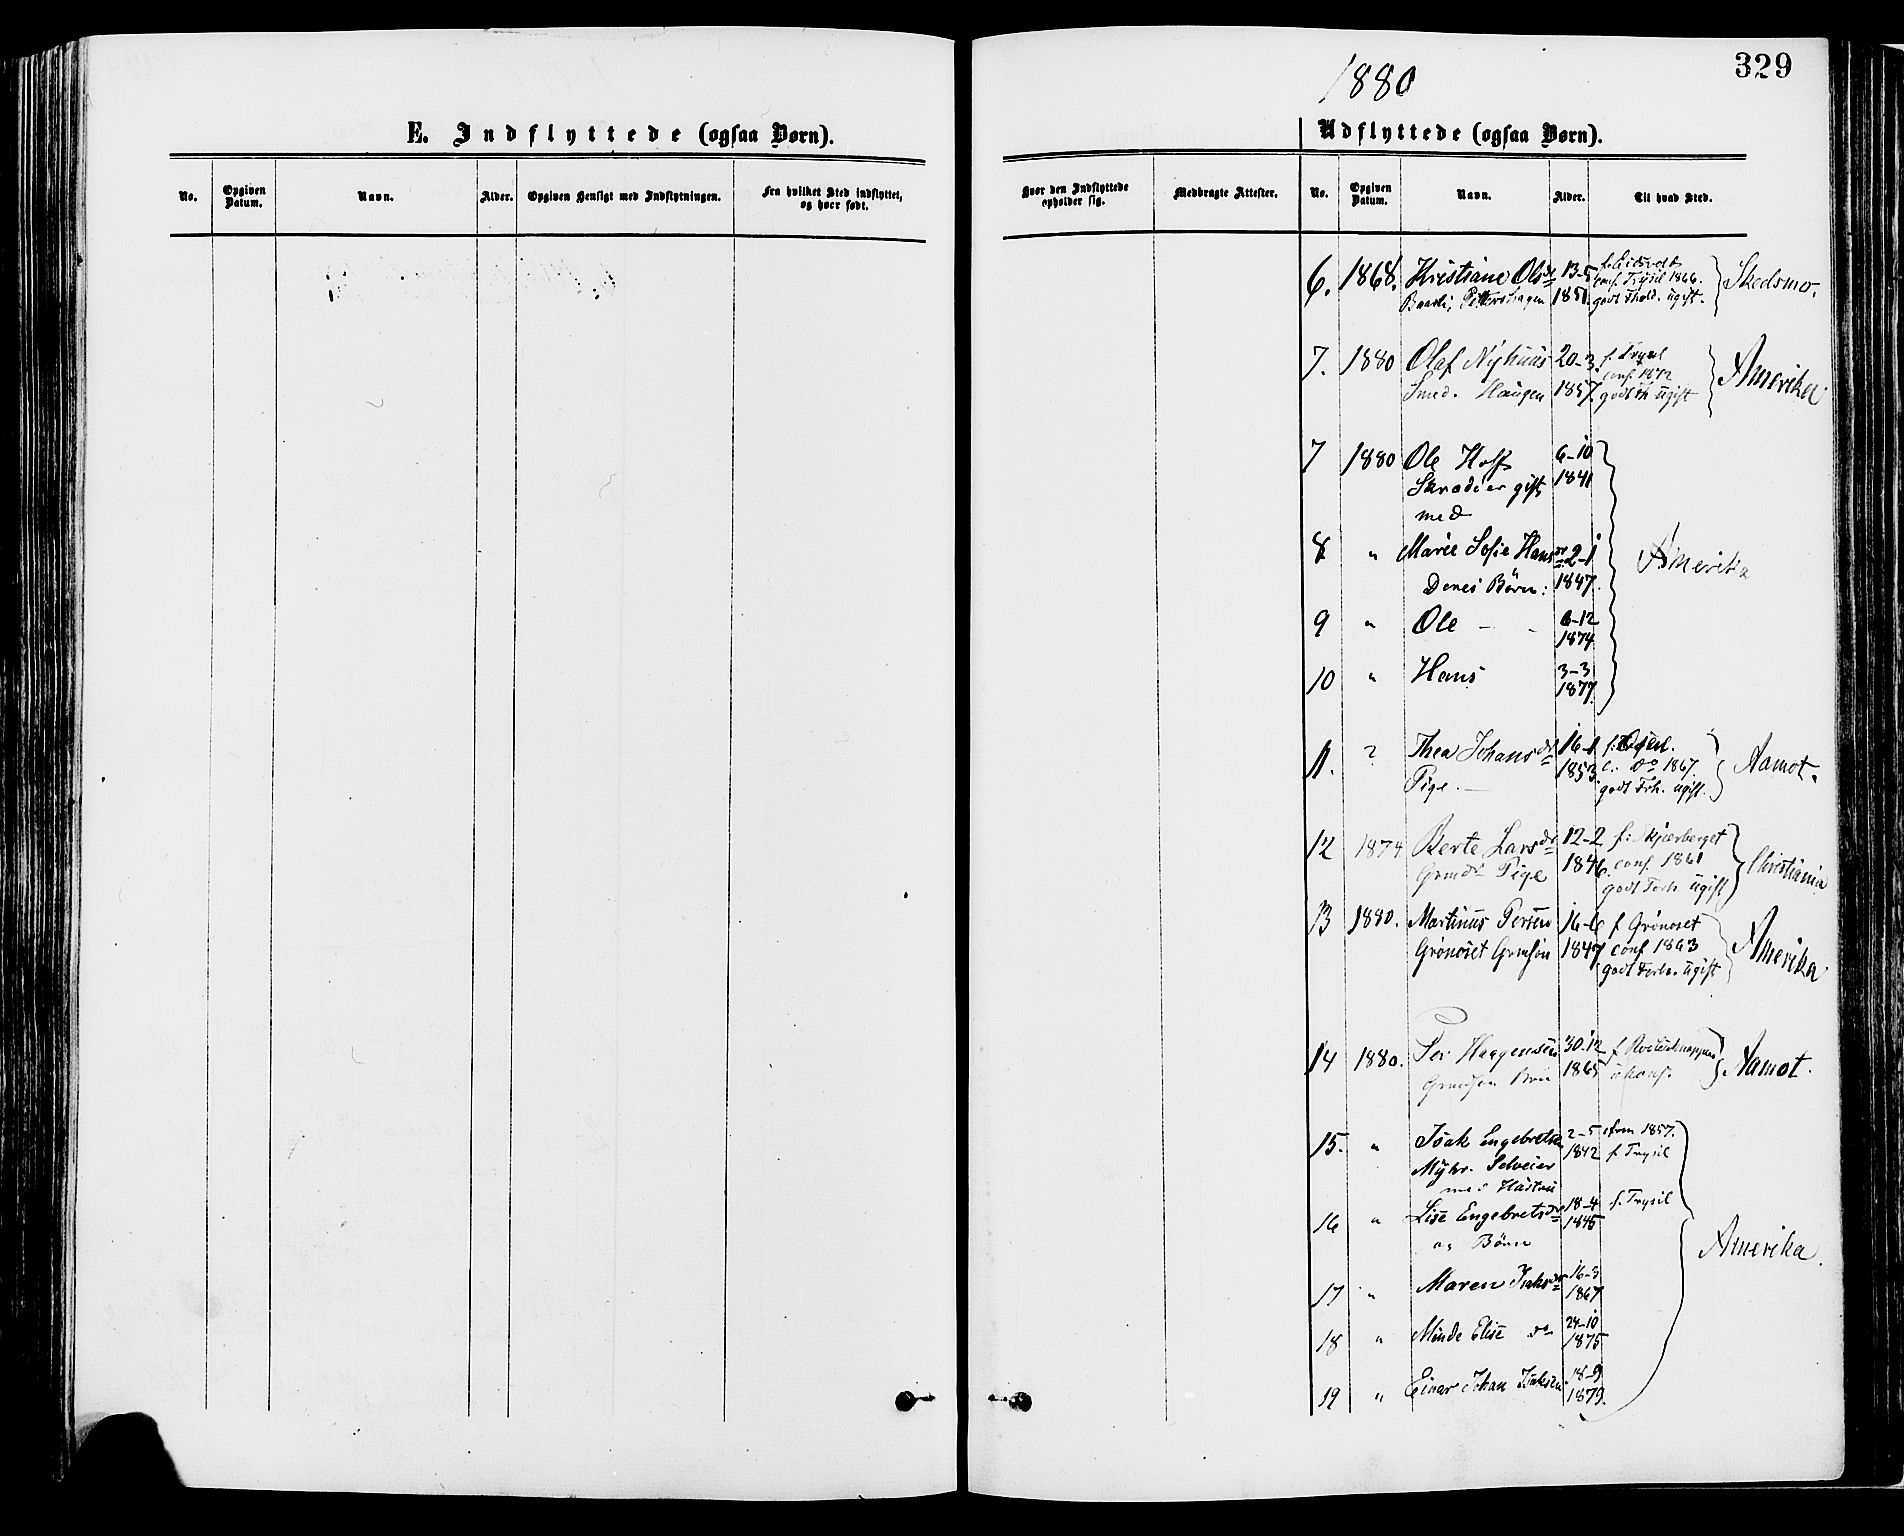 329
1880
E. Indflyttede (ogsaa Børn).
No. Opgiven Datum. Navn. Alder. Opgiven Hensigt med Indflytningen. Fra hvilket Sted indflyttet, og hvor født.
Udflyttede (ogsaa Børn).
Hvor den Indflyttede opholder sig. Medbragte Attester. No. Opgiven Datum. Navn. Alder. Til hvad Sted.
6. 1868. Kristiane Olsdr 13-5 f. Eidsvold
conf. Trysil 1866. Skedsmo.
1851. godt Fhold. ugift.
7. 1880 Olaf Nyhuus 20-3 f. Trysil
conf. 1872 Amerika
Smed. Haugen 1857. godt Fh ugift
7 1880 Ole Hoff 6-10
Skrædder gift 1841
med
8 " Marie Sofie Hansdr 2-1 Amerika
Deres Børn: 1847.
9 " Ole - - 6-12
1874
10 " Hans 3-3
1877.
11. ? Thea Johansdr 16-1
1853. c. do 1867. Aamot.
Pige. godt Frh. ugift.
12 1874 Berte Larsdr 12-2 f: Skjærberget
Grmdr Pige 1846. conf 1861 Christiania
godt Forh ugift
13 1880. Martinus Persen 16-6 f Grønoset
Grønoset Grmsøn 1847 conf 1863 Amerika
godt Forh. ugift
14 1880. Per Haagensen 30-12
Grmsøn 1865 ukonf. Aamot.
15. " Isak Engebretsen 2-5 1857.
Myhr. Selveier 1842 f Trysil
med Hustru
16 " Lise Engebretsdr 18-4 f. Trysil
og Børn 1845
Amerika.
17 " Maren Isaksdr 16-3
1867
18 " Minde Elise do 24-10
1875
19 " Einar Johan Isaksen 18-9
1879.